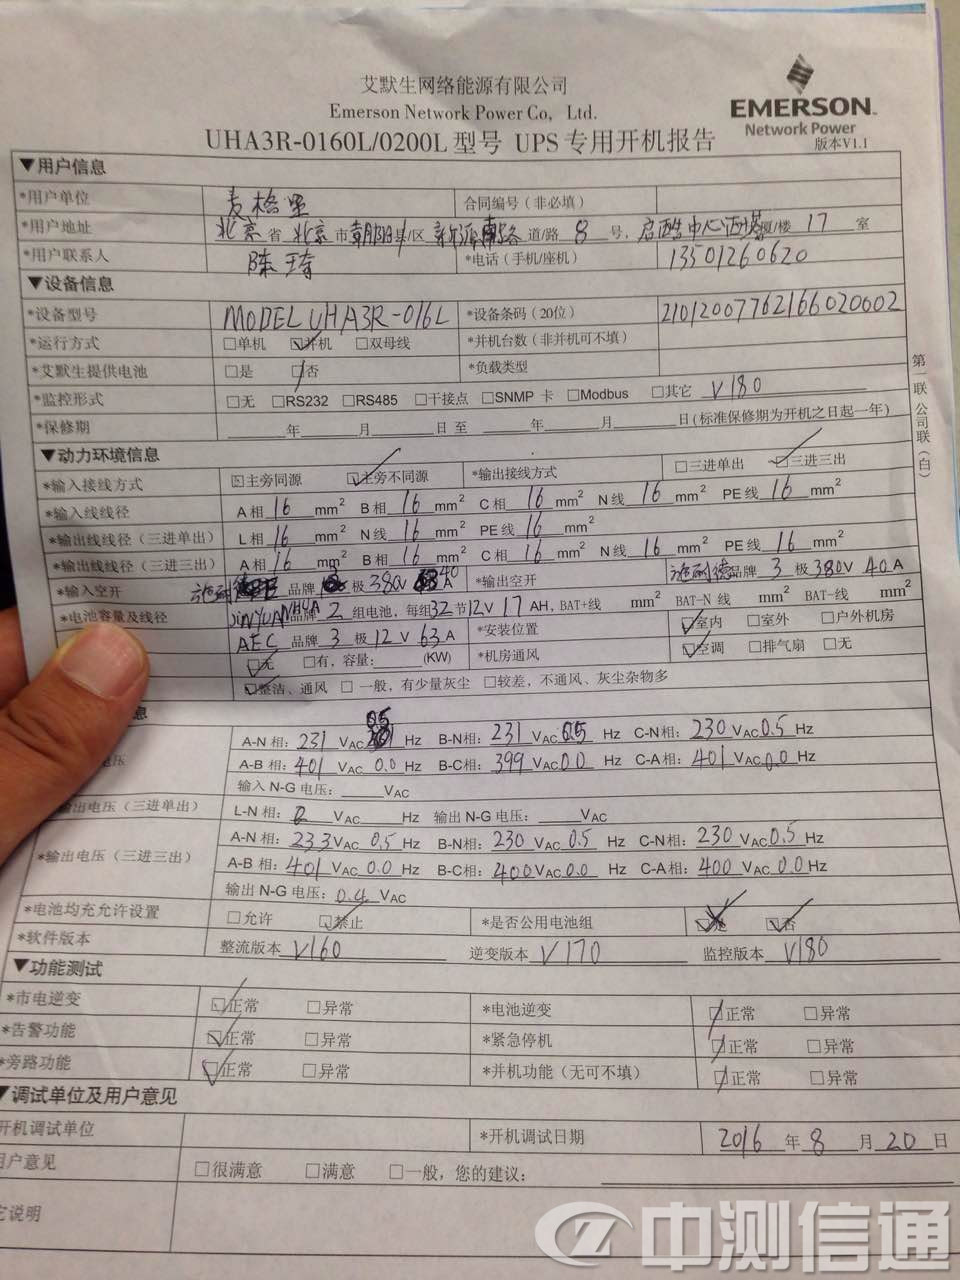 艾默生网络能源有限公司
Emerson Network Power Co, Ltd.
EMERSON
Network Power
UHA3R-0160L/0200L 型号 UPS 专用开机报告
版本V1.1
▼用户信息
*用户单位 麦格里 合同编号（非必填）
*用户地址 北京 省 北京 市 朝阳 县/区 新源南路 道/路 8 号, 启皓中心西塔 厦/楼 17 室
*用户联系人 陈琦 *电话（手机/座机） 13501260620
▼设备信息
*设备型号 MODEL UHA3R-016L *设备条码（20位） 21012007762166020002
*运行方式 □单机 ☑并机 □双母线 *并机台数（非并机可不填）
*艾默生提供电池 □是 ☑否 *负载类型
*监控形式 □无 □RS232 □RS485 □干接点 □SNMP 卡 □Modbus □其它 V180
*保修期 年 月 日 至 年 月 日（标准保修期为开机之日起一年）
第一联 公司联（白）
▼动力环境信息
*输入接线方式 □主旁同源 ☑主旁不同源 *输出接线方式 □三进单出 ☑三进三出
*输入线线径 A 相 16 mm² B 相 16 mm² C 相 16 mm² N 线 16 mm² PE 线 16 mm²
*输出线线径（三进单出） L 相 16 mm² N 线 16 mm² PE 线 16 mm²
*输出线线径（三进三出） A 相 16 mm² B 相 16 mm² C 相 16 mm² N 线 16 mm² PE 线 16 mm²
*输入空开 施耐德 品牌 极 380V 40 A *输出空开 施耐德 品牌 3 极 380V 40 A
*电池容量及线径 JINYUANHUA 品牌 2 组电池, 每组 32 节 12V 17 AH, BAT+线 mm² BAT-N 线 mm² BAT-线 mm²
AEC 品牌 3 极 12 V 63 A *安装位置 ☑室内 □室外 □户外机房
☑无 □有, 容量: (KW) *机房通风 ☑空调 □排气扇 □无
☑整洁、通风 □ 一般, 有少量灰尘 □较差, 不通风、灰尘杂物多
息
A-N 相: 231 VAC 0.5 Hz B-N相: 231 VAC 0.5 Hz C-N相: 230 VAC 0.5 Hz
电压 A-B 相: 401 VAC 0.0 Hz B-C相: 399 VAC 0.0 Hz C-A相: 401 VAC 0.0 Hz
输入 N-G 电压: VAC
输出电压（三进单出） L-N 相: VAC Hz 输出 N-G 电压: VAC
A-N 相: 233 VAC 0.5 Hz B-N相: 230 VAC 0.5 Hz C-N相: 230 VAC 0.5 Hz
*输出电压（三进三出） A-B 相: 401 VAC 0.0 Hz B-C相: 400 VAC 0.0 Hz C-A 相: 400 VAC 0.0 Hz
输出 N-G 电压: 0.4 VAC
*电池均充允许设置 □允许 ☑禁止 *是否公用电池组 ☑是 ☑否
*软件版本 整流版本 V160 逆变版本 V170 监控版本 V180
▼功能测试
*市电逆变 ☑正常 □异常 *电池逆变 ☑正常 □异常
*告警功能 ☑正常 □异常 *紧急停机 ☑正常 □异常
*旁路功能 ☑正常 □异常 *并机功能（无可不填） ☑正常 □异常
▼调试单位及用户意见
开机调试单位 *开机调试日期 2016 年 8 月 20 日
用户意见 □很满意 □满意 □一般, 您的建议:
它说明
中测信通